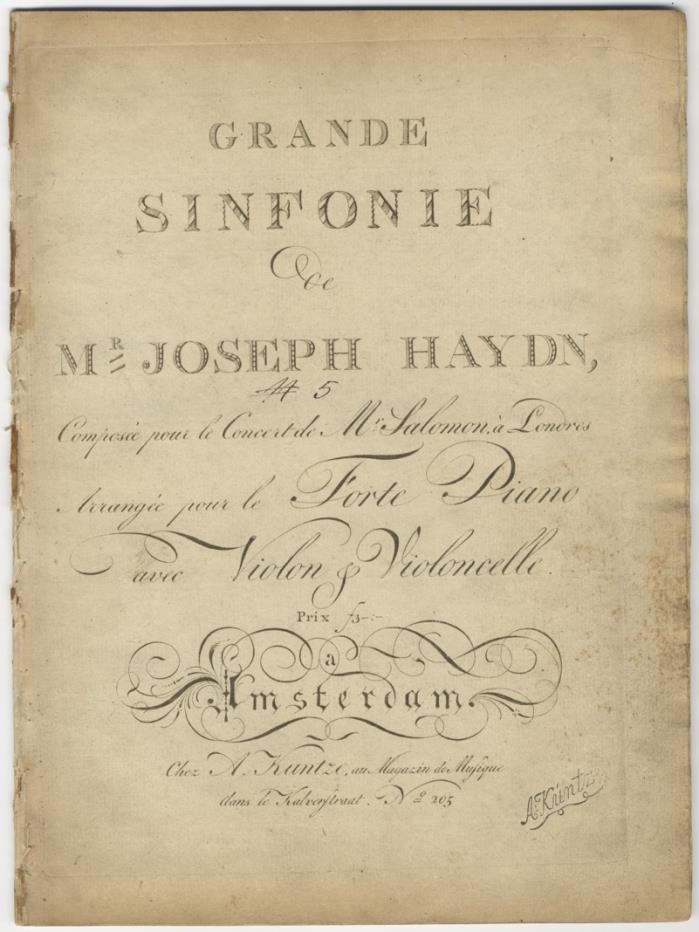 GRANDE
SINFONIE
De
Mʀ JOSEPH HAYDN,
5
Composée pour le Concert de Mʳ Salomon, à Londres
Arrangée pour le Forte Piano
avec Violon & Violoncelle.
Prix f3-:-
a
Amsterdam.
Chez A. Kuntze, au Magazin de Musique
dans le Kalverstraat. Nº 205
A. Kuntze